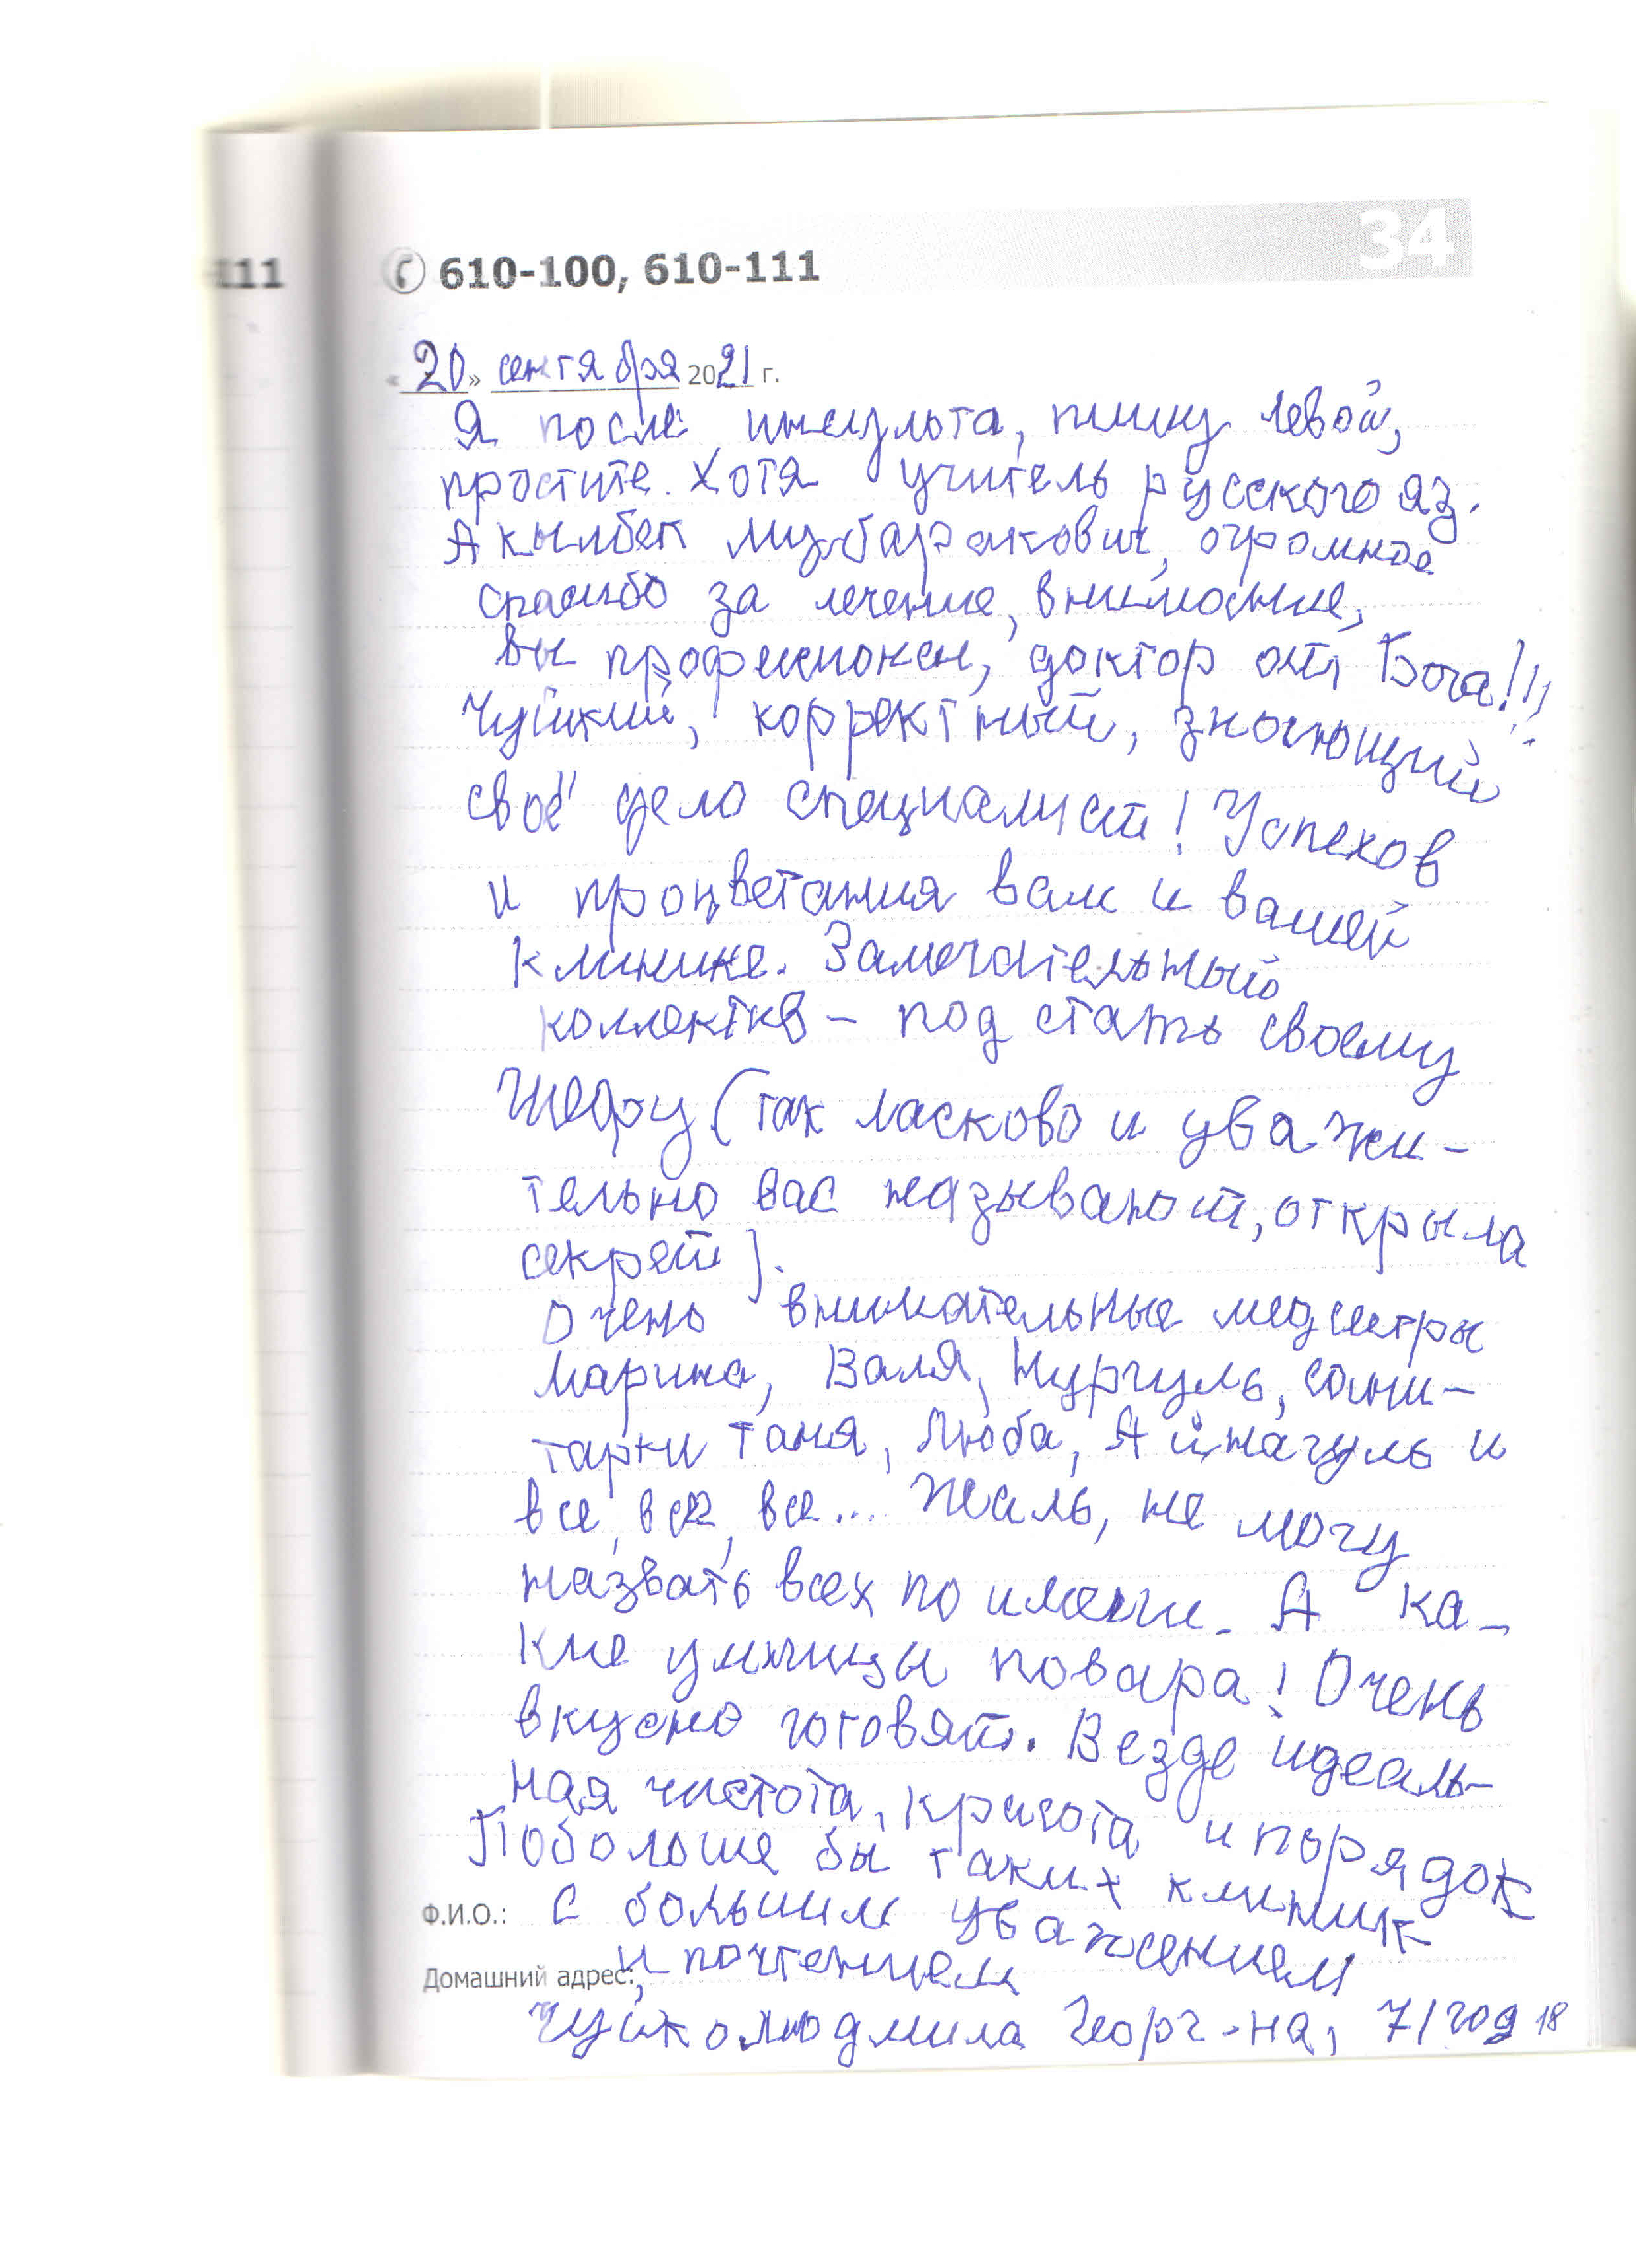 34
111
610-100, 610-111
«20» сентября 2021 г.
Я после инсульта, пишу левой,
простите. Хотя учитель русского яз.
Акылбек Мубаракович, огромное
спасибо за лечение, внимание,
вы профессионал, доктор от Бога!!!
Чуткий, корректный, знающий
своё дело специалист! Успехов
и процветания вам и вашей
клинике. Замечательный
коллектив – под стать своему
Шефу (так ласково и уважи-
тельно вас называют, открыла
секрет).
Очень внимательные медсестры
Марина, Валя, Нургуль, сани-
тарки Таня, Люба, Айнагуль и
все, все, все... Жаль, не могу
назвать всех по имени. А ка-
кие умницы повара! Очень
вкусно готовят. Везде идеаль-
ная чистота, красота и порядок
Побольше бы таких клиник
Ф.И.О.: С большим уважением
Домашний адрес: и почтением
Чуйко Людмила Георг-на, 71 год